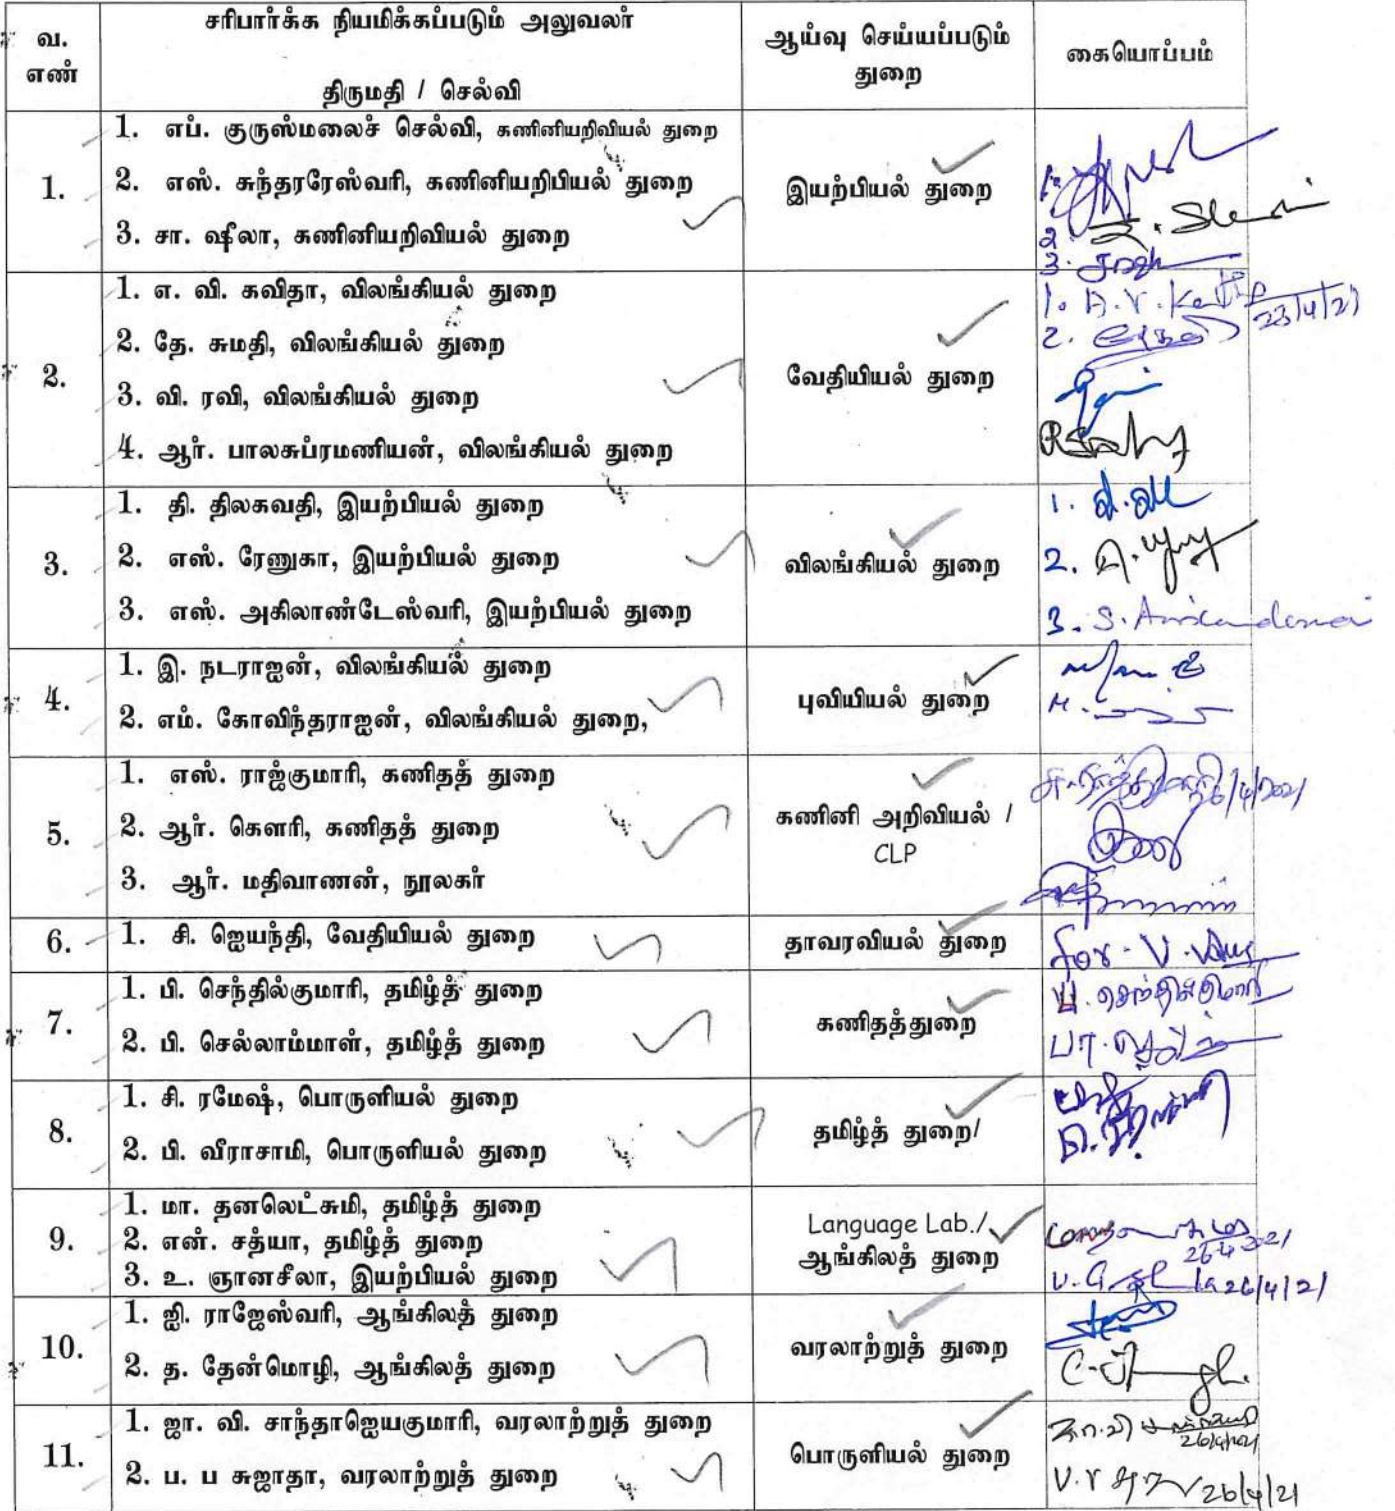 வ. எண்
சரிபார்க்க நியமிக்கப்படும் அலுவலர்
திருமதி / செல்வி
ஆய்வு செய்யப்படும்
துறை
கையொப்பம்
1.
1. எப். குருஸ்மலைச் செல்வி, கணினியறிவியல் துறை
2. எஸ். சுந்தரரேஸ்வரி, கணினியறிபியல் துறை
3. சா. ஷீலா, கணினியறிவியல் துறை
இயற்பியல் துறை
1.
2.
3.
2.
1. எ. வி. கவிதா, விலங்கியல் துறை
2. தே. சுமதி, விலங்கியல் துறை
3. வி. ரவி, விலங்கியல் துறை
4. ஆர். பாலசுப்ரமணியன், விலங்கியல் துறை
வேதியியல் துறை
1. A.V.
23/4/21
2.
3.
1. தி. திலகவதி, இயற்பியல் துறை
2. எஸ். ரேணுகா, இயற்பியல் துறை
3. எஸ். அகிலாண்டேஸ்வரி, இயற்பியல் துறை
விலங்கியல் துறை
1.
2.
3. S.
4.
1. இ. நடராஜன், விலங்கியல் துறை
2. எம். கோவிந்தராஜன், விலங்கியல் துறை,
புவியியல் துறை
5.
1. எஸ். ராஜ்குமாரி, கணிதத் துறை
2. ஆர். கௌரி, கணிதத் துறை
3. ஆர். மதிவாணன், நூலகர்
கணினி அறிவியல் /
CLP
26/4/2021
6.
1. சி. ஜெயந்தி, வேதியியல் துறை
தாவரவியல் துறை
for. V.
7.
1. பி. செந்தில்குமாரி, தமிழ்த் துறை
2. பி. செல்லாம்மாள், தமிழ்த் துறை
கணிதத்துறை
8.
1. சி. ரமேஷ், பொருளியல் துறை
2. பி. வீராசாமி, பொருளியல் துறை
தமிழ்த் துறை/
9.
1. மா. தனலெட்சுமி, தமிழ்த் துறை
2. என். சத்யா, தமிழ்த் துறை
3. உ. ஞானசீலா, இயற்பியல் துறை
Language Lab./
ஆங்கிலத் துறை
26/4/2021
26/4/21
10.
1. ஜி. ராஜேஸ்வரி, ஆங்கிலத் துறை
2. த. தேன்மொழி, ஆங்கிலத் துறை
வரலாற்றுத் துறை
11.
1. ஜா. வி. சாந்தாஜெயகுமாரி, வரலாற்றுத் துறை
2. ப. ப சுஜாதா, வரலாற்றுத் துறை
பொருளியல் துறை
26/4/2021
26/4/21